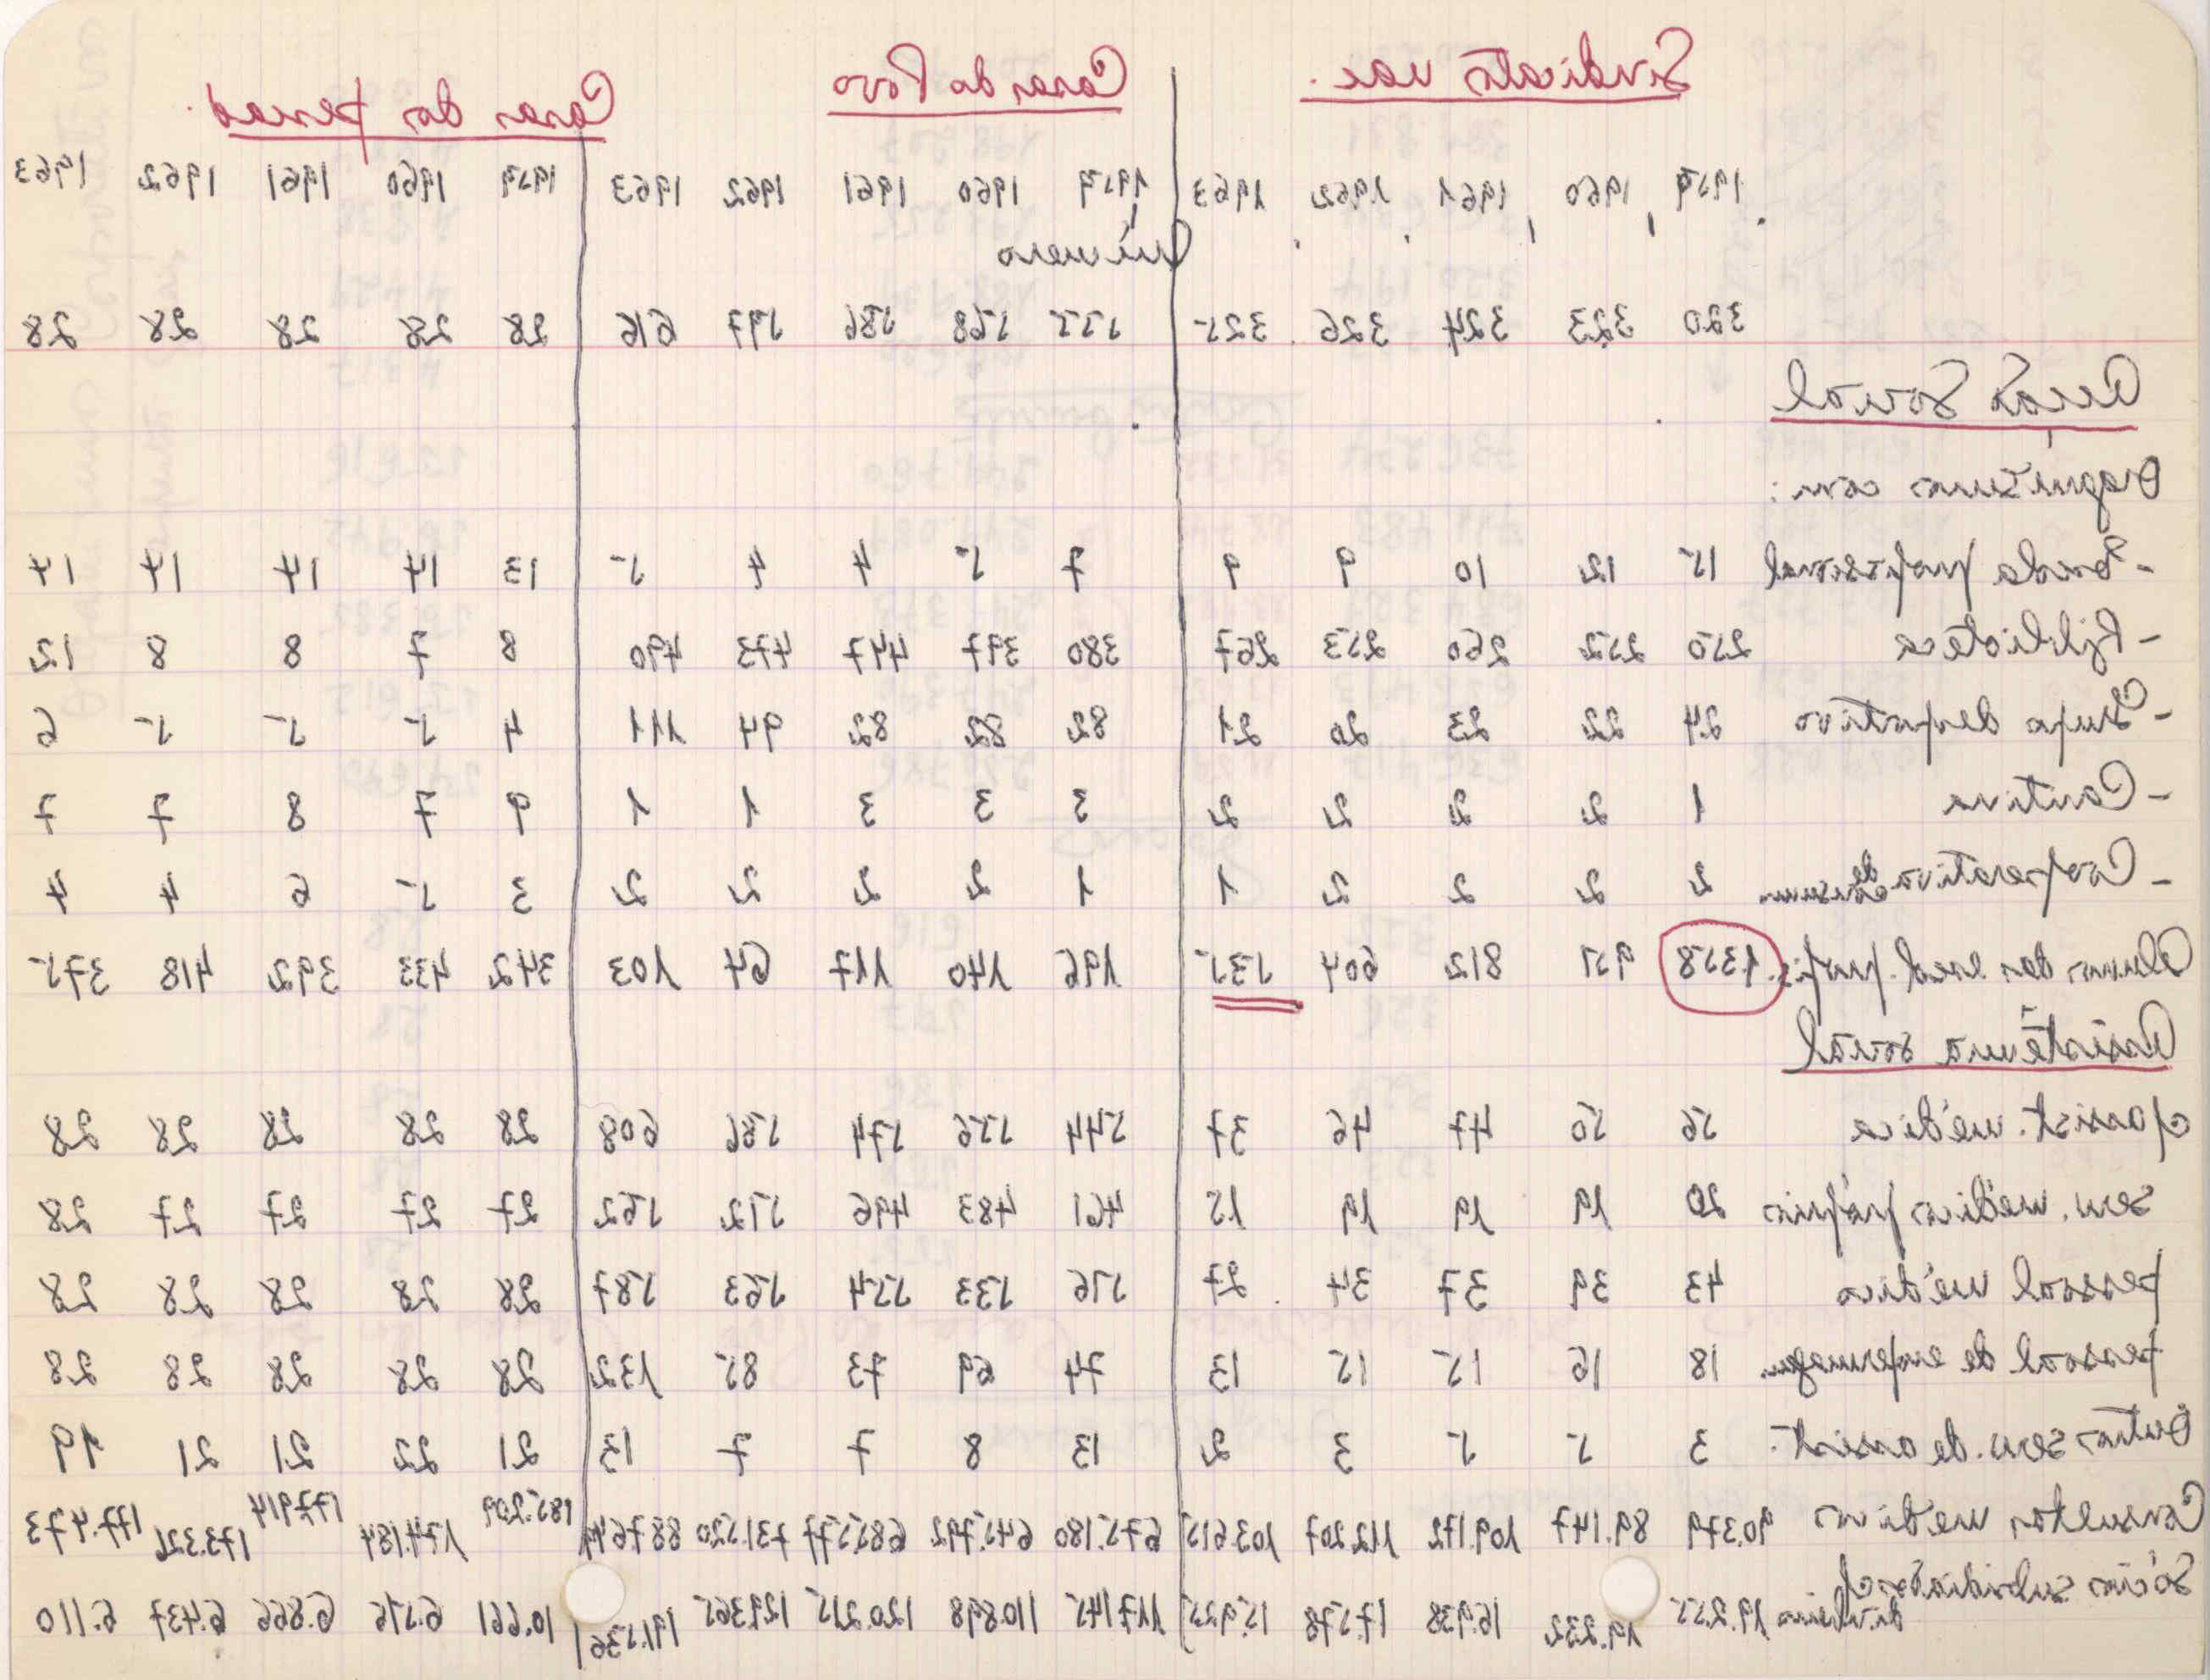 Sindicatos nac. Casas do Povo Casas dos pescad.
1959 1960 1961 1962 1963 1959 1960 1961 1962 1963 1959 1960 1961 1962 1963
Número
320 323 324 326 325 555 568 586 597 616 28 28 28 28 28
Acção Social
Organismos com:
- Escola profissional 15 12 10 9 9 7 5 4 4 5 13 14 14 14 14
- Biblioteca 250 252 260 253 267 380 397 447 473 490 8 7 8 8 12
- Grupo desportivo 24 22 23 20 21 82 82 82 94 111 4 5 5 5 6
- Cantina 1 2 2 2 2 3 3 3 1 1 9 7 8 7 7
- Cooperativa de consum. 2 2 2 2 1 1 2 2 2 2 3 5 6 4 4
Alunos das escol. profis. 1358 951 812 604 535 196 140 117 64 103 342 433 392 418 375
Assistência social
c/ assist. médica 56 50 47 46 37 544 556 574 586 608 28 28 28 28 28
serv. médicos próprios 20 19 19 19 15 461 483 496 512 562 27 27 27 27 28
pessoal médico 43 39 37 34 27 516 533 554 563 587 28 28 28 28 28
pessoal de enfermagem 18 16 15 15 13 74 69 73 85 132 28 28 28 28 28
Outros serv. de assist. 3 5 5 3 2 13 8 7 7 13 21 22 21 21 19
Consultas médicas 90.379 89.147 109.172 112.207 103.615 675.180 645.792 685.577 731.520 887.644 185.209 174.184 177.914 173.326 177.473
Sócios subsidiados c/ dinheiro 19.255 19.232 16.938 17.578 15.925 117.145 110.898 120.215 129.365 191.536 10.661 6.576 6.866 6.437 6.110